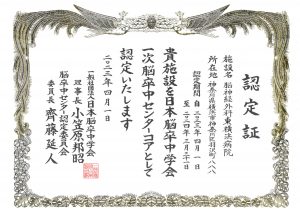 認定証
施設名 脳神経外科東横浜病院
所在地 神奈川県横浜市神奈川区羽沢町八八八
認定期間 自 二〇二三年 四月 一日
至 二〇二四年 三月三十一日
貴施設を日本脳卒中学会
一次脳卒中センターコアとして
認定いたします
二〇二三年 四月 一日
一般社団法人日本脳卒中学会
理事長 小笠原邦昭
脳卒中センター認定委員会
委員長 齊藤延人